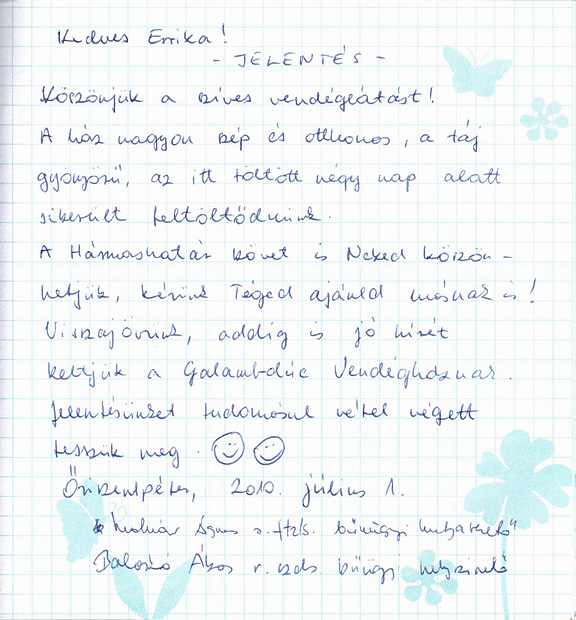 Kedves Errika!
- JELENTÉS -
Köszönjük a szíves vendéglátást!
A ház nagyon szép és otthonos, a táj
gyönyörű, az itt töltött négy nap alatt
sikerült feltöltődnünk.
A Hármashatár követ is Neked köszön-
hetjük, kérünk Téged ajánld másnak is!
Visszajövünk, addig is jó hírét
keltjük a Galamb-dúc Vendégháznak.
Jelentésünket tudomásul vétel végett
tesszük meg.
Őriszentpéter, 2010. július 1.
Molnár Ágnes bűnügyi
Ákos r. bűnügyi helyszínelő